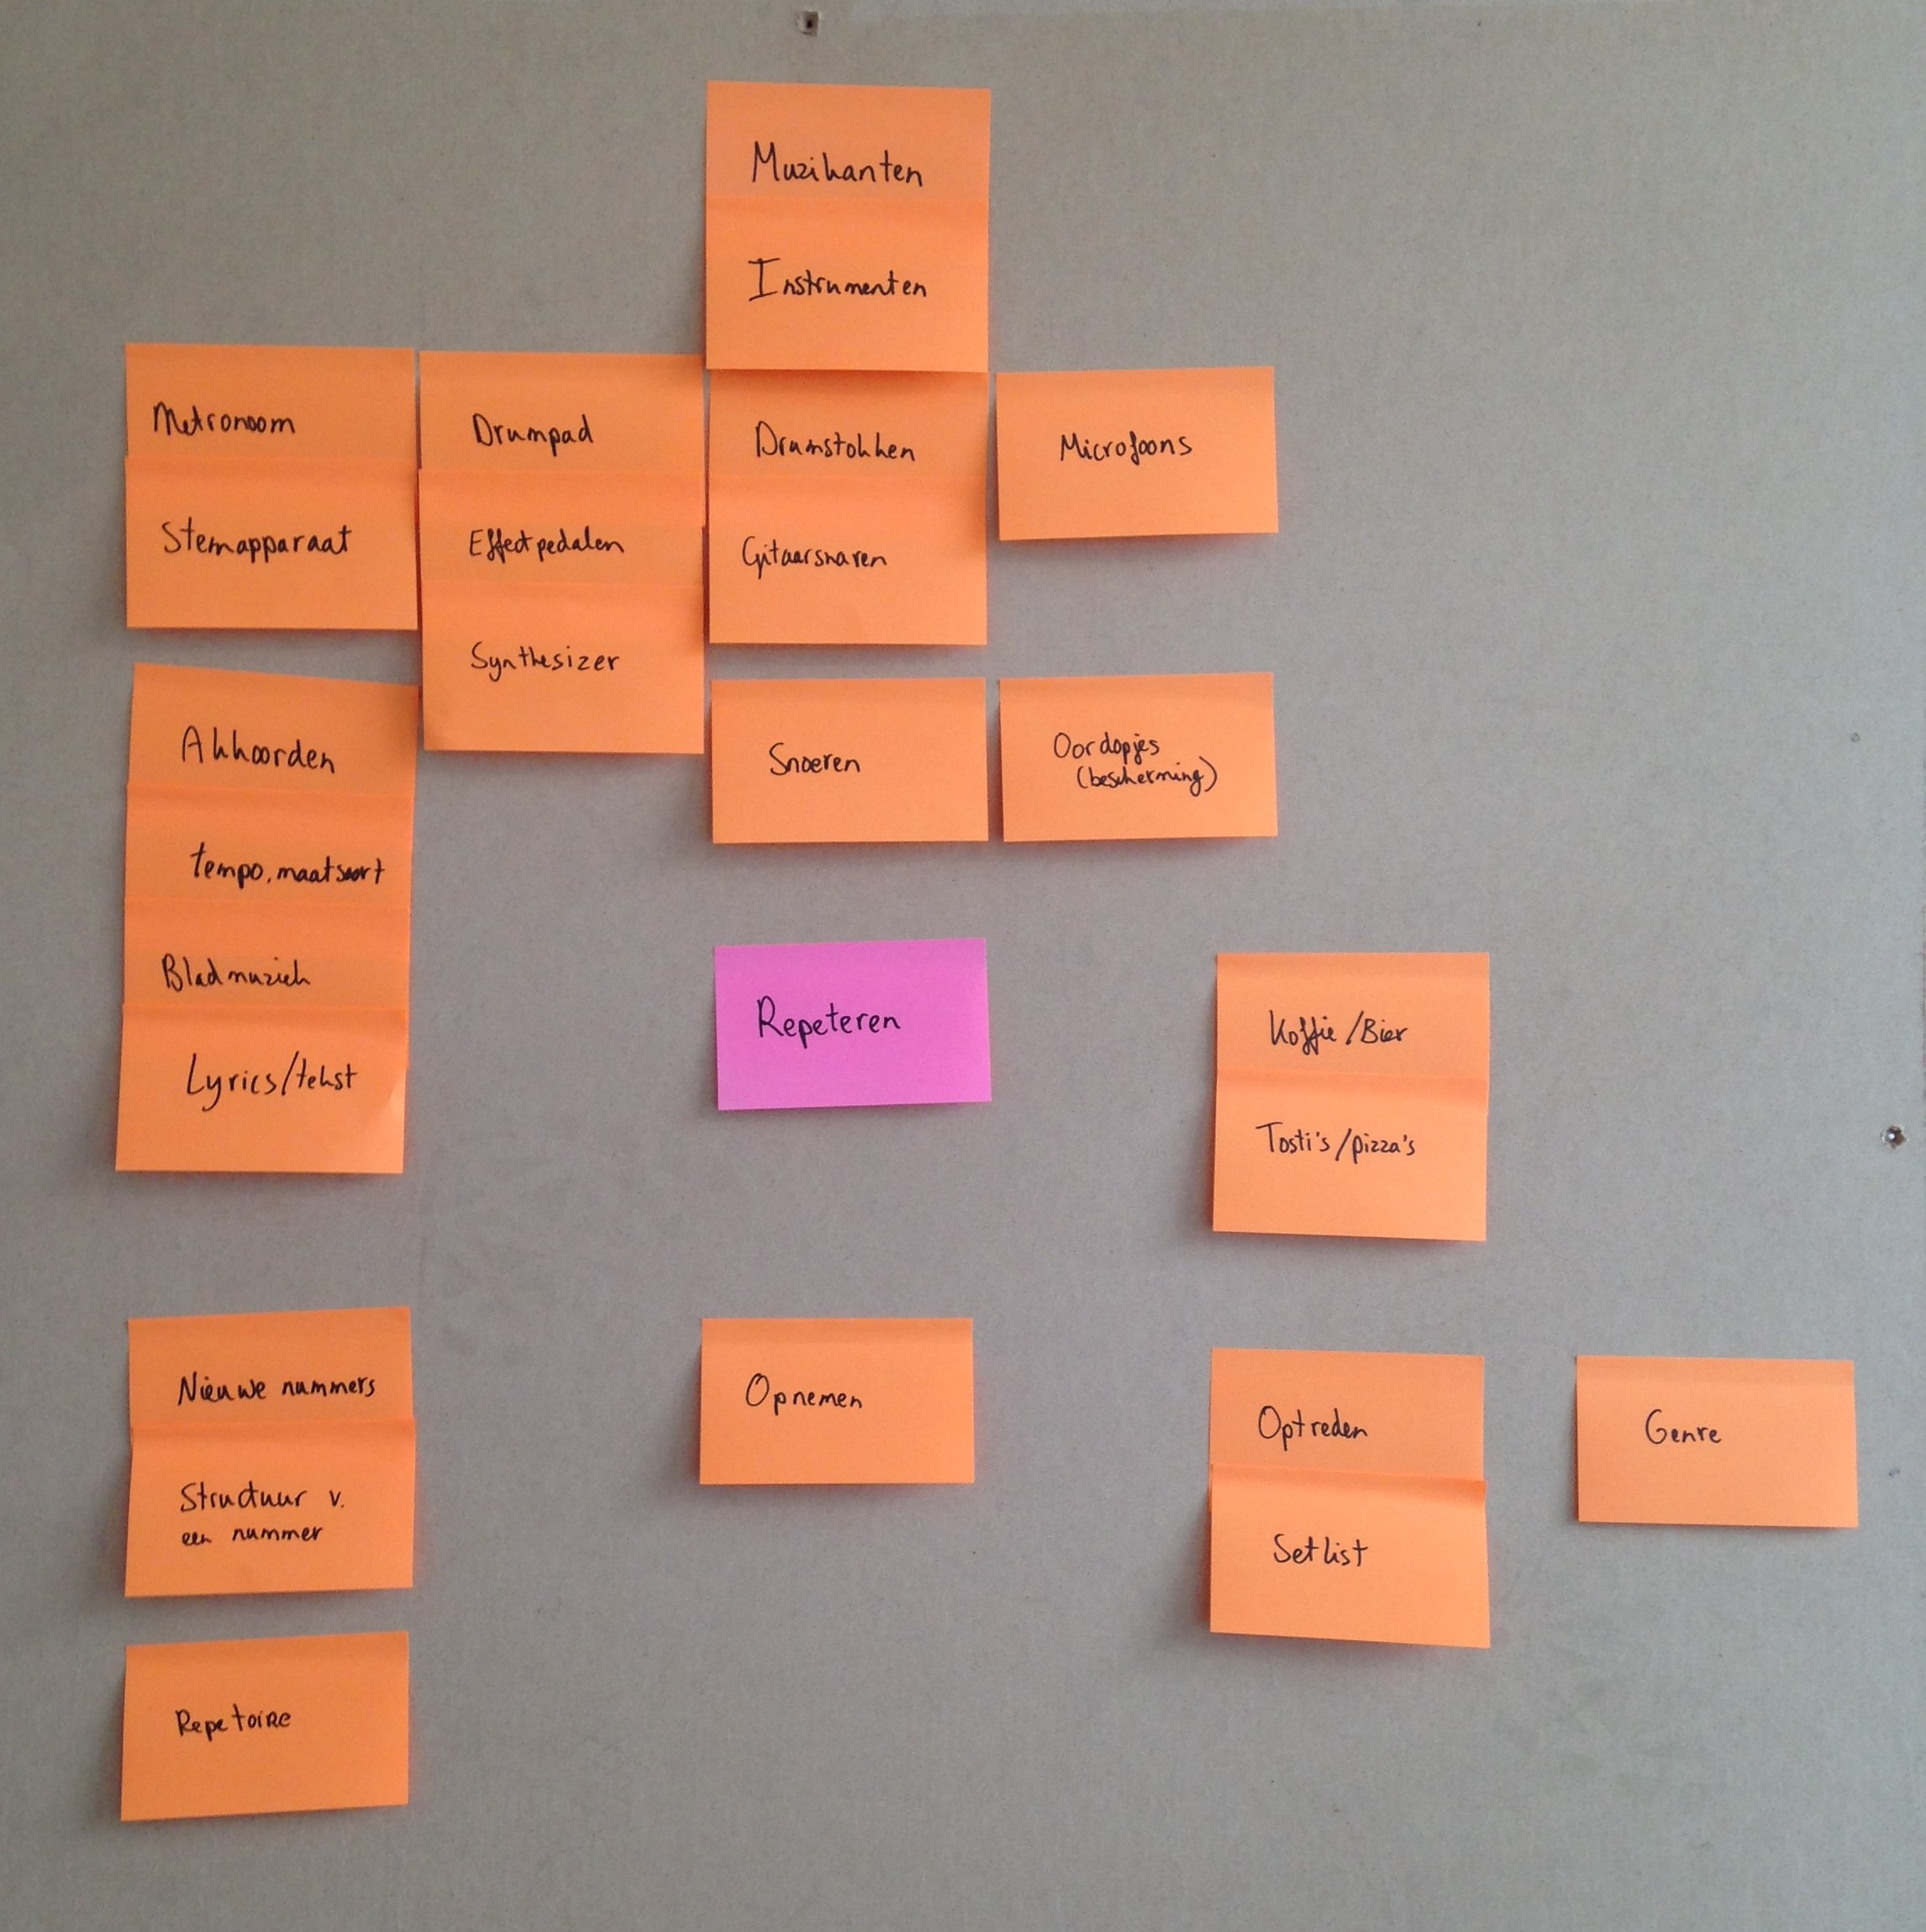 Muzikanten
Instrumenten
Metronoom
Stemapparaat
Drumpad
Effectpedalen
Synthesizer
Drumstokken
Gitaarsnaren
Microfoons
Akkoorden
tempo, maatsoort
Bladmuziek
Lyrics/tekst
Snoeren
Oordopjes
(bescherming)
Repeteren
Koffie/Bier
Tosti's/pizza's
Nieuwe nummers
Structuur v.
een nummer
Repetoire
Opnemen
Optreden
Setlist
Genre